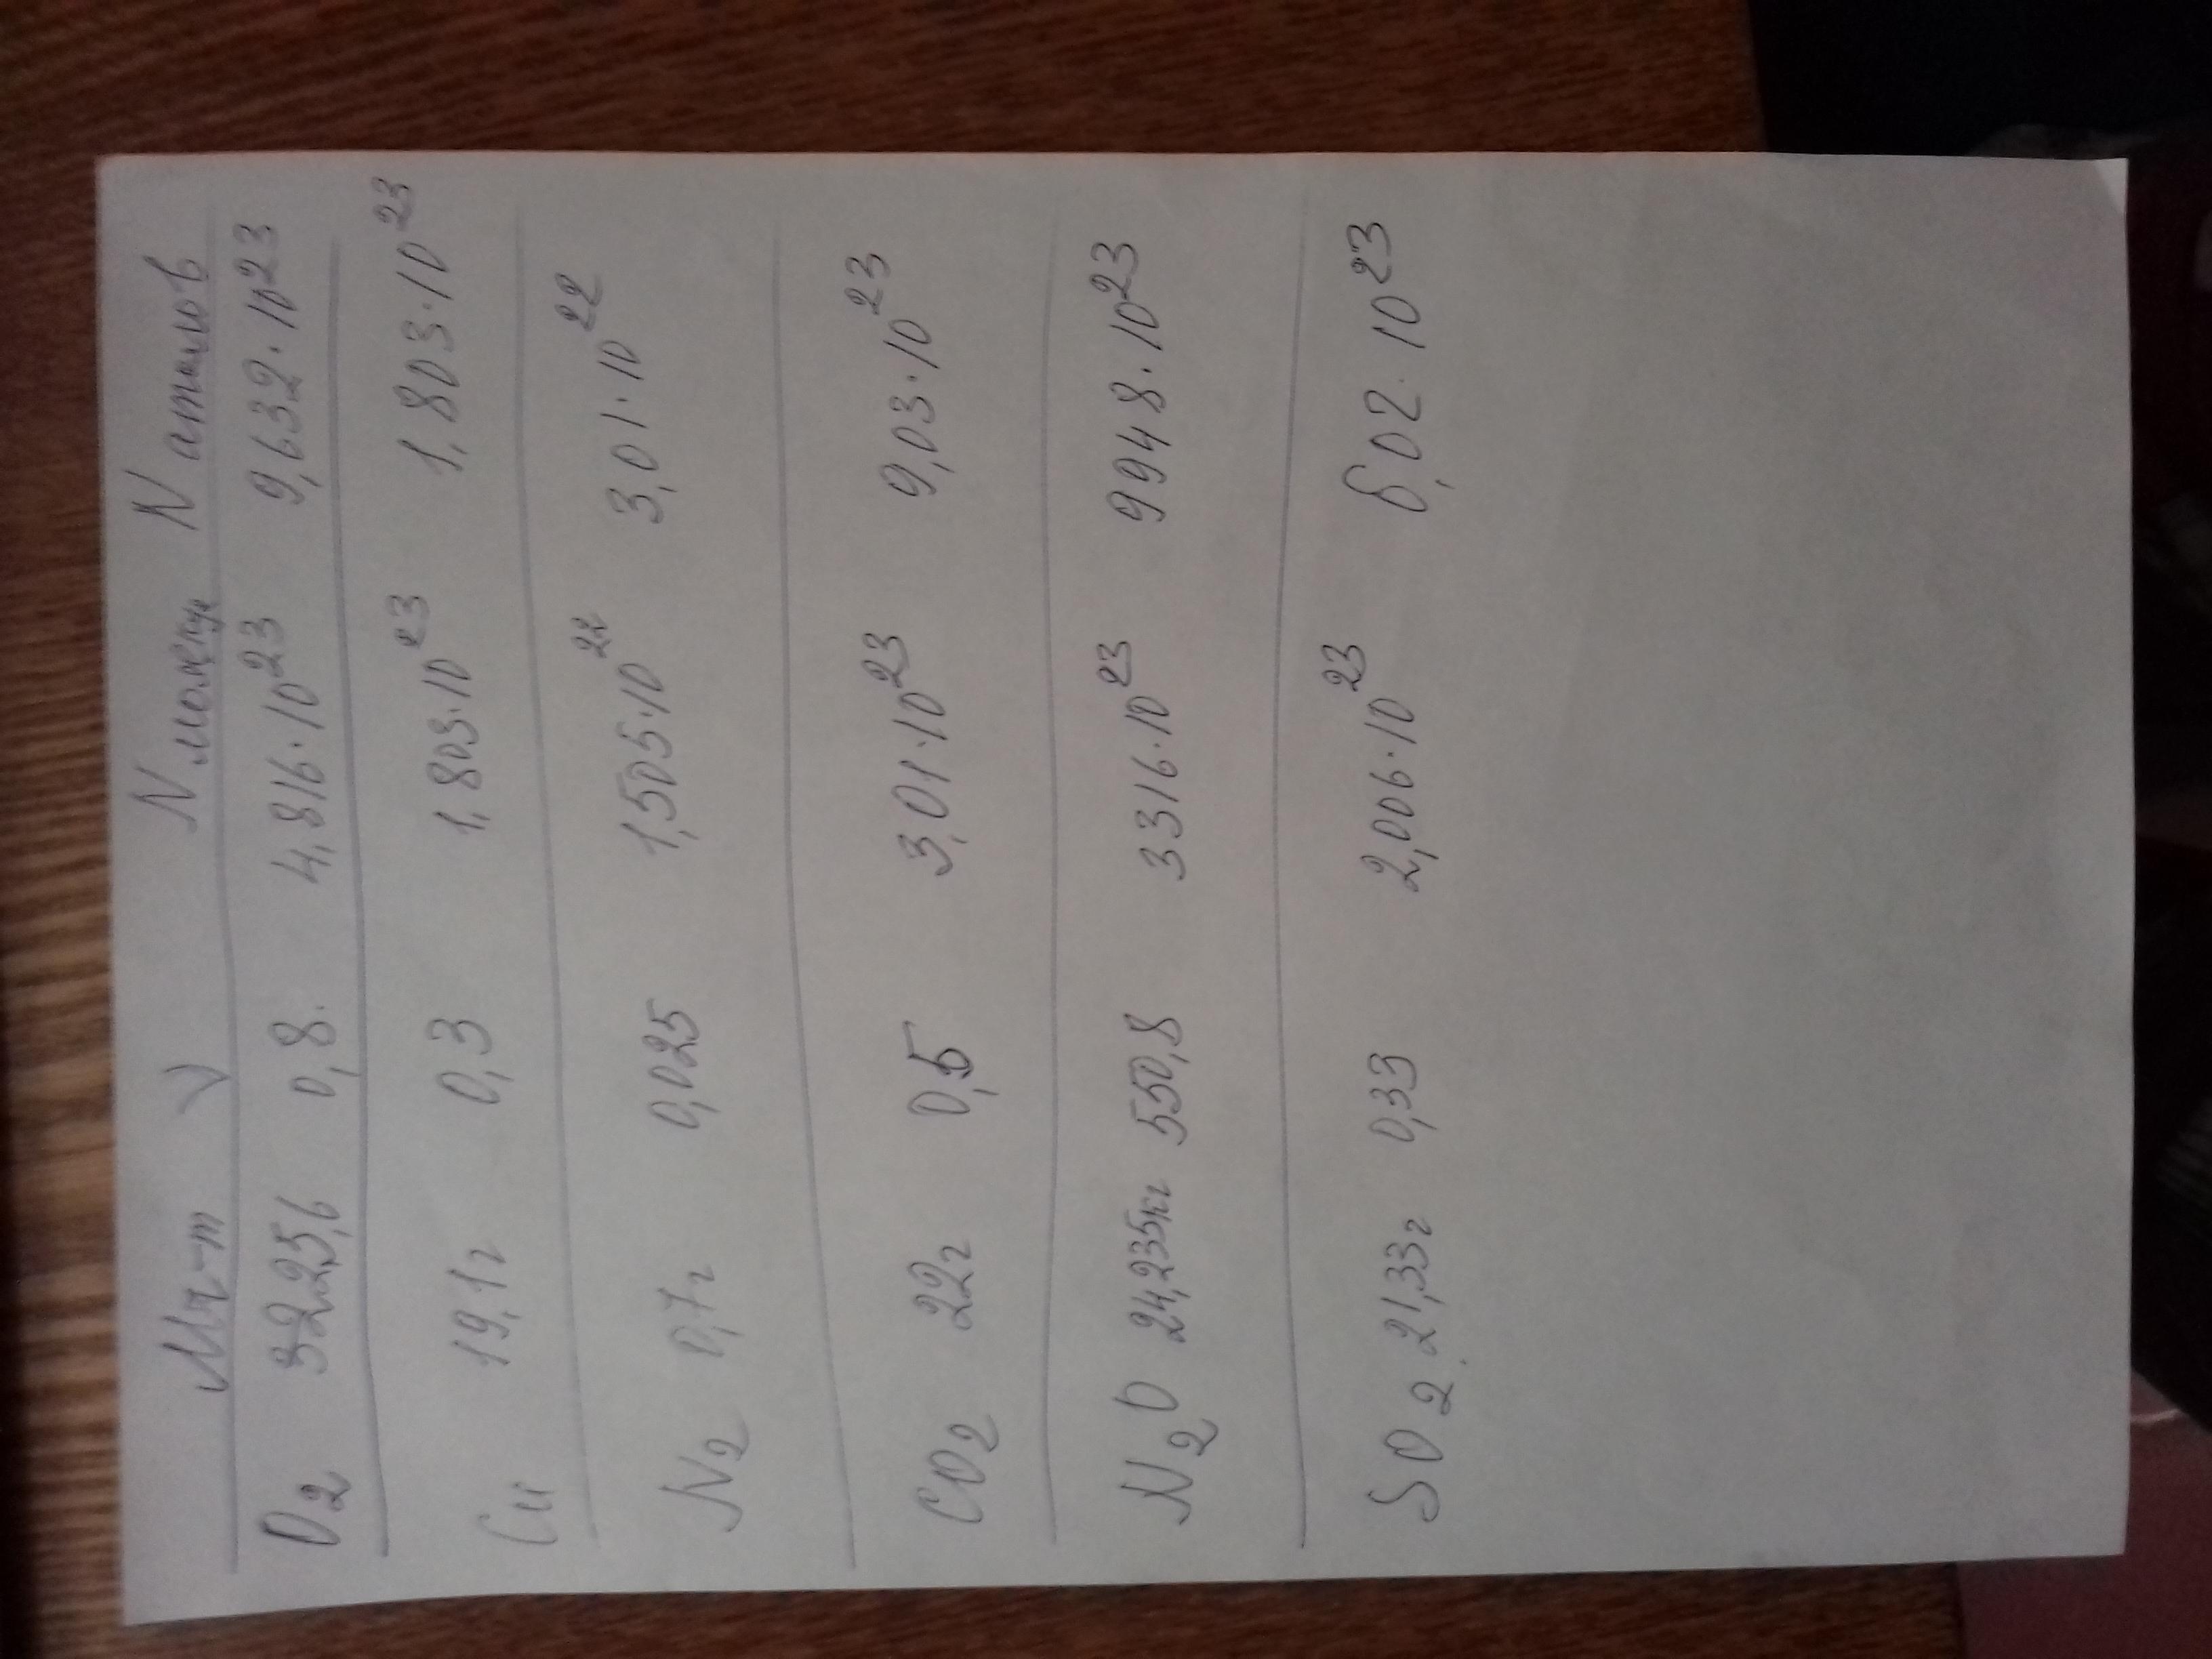 ν N молекул N атомов
O₂ 3225,6 0,8. 4,816·10²³ 9,632·10²³
Cu 19,1г 0,3 1,803·10²³ 1,803·10²³
N₂ 0,7г 0,025 1,505·10²² 3,01·10²²
CO₂ 22г 0,5 3,01·10²³ 9,03·10²³
N₂O 24,235кг 550,8 3316·10²³ 9948·10²³
SO₂ 21,33г 0,33 2,006·10²³ 6,02·10²³